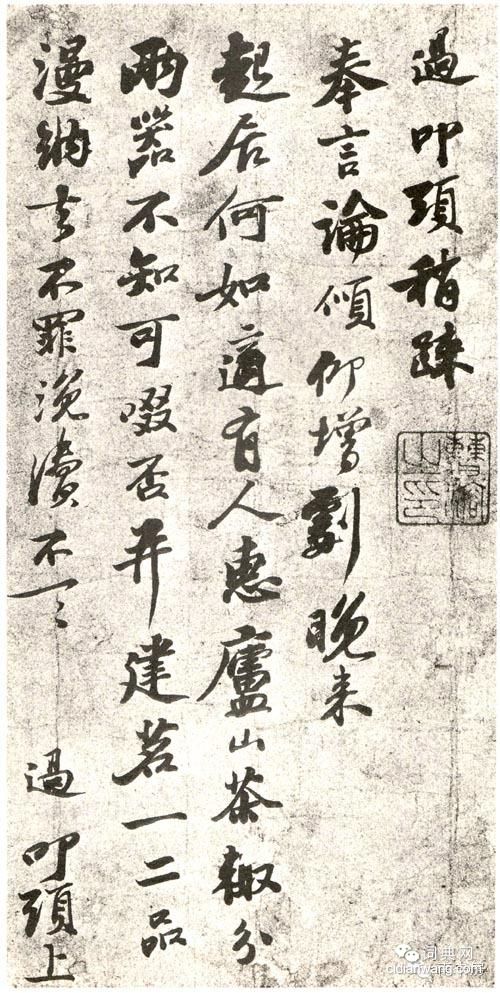 過叩頭稍疎
奉言論傾仰增劇晚来
起居何如適有人惠廬山茶輙分
兩器不知可啜否并建茗一二品
漫納去不罪浼瀆不一一 過叩頭上
词典网
cidianwang.com